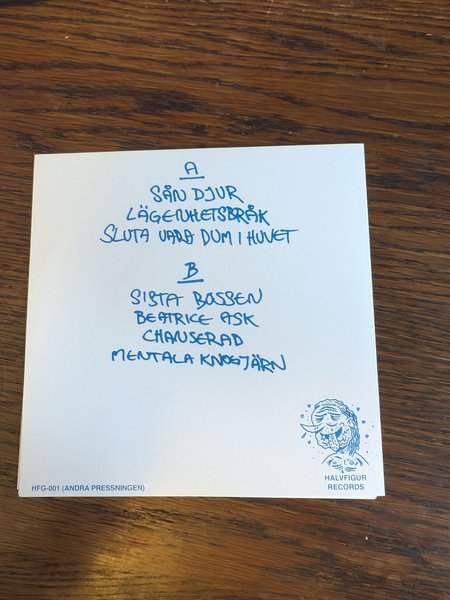 A
SÅN DJUR
LÄGENHETSBRÅK
SLUTA VARA DUM I HUVET
B
SISTA BOSSEN
BEATRICE ASK
CHANSERAD
MENTALA KNOGJÄRN
HFG-001 (ANDRA PRESSNINGEN)
HALVFIGUR
RECORDS